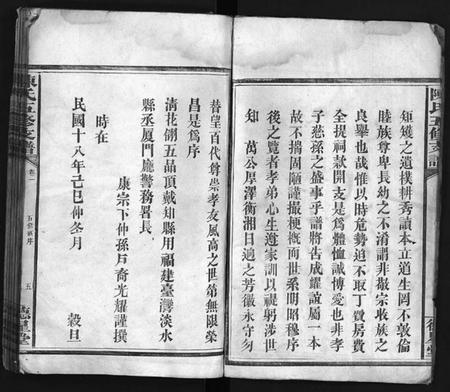 陳氏五修支譜
矩矱之遺樸耕秀讀本立道生罔不敦倫
睦族尊卑長幼之不淆謂非敬宗收族之
良舉也哉惟以時危勢迫不取丁費房費
全提祠款開支是為體恤誠博愛也非孝
子慈孫之盛事乎譜將告成耀誼屬一本
故不揣固陋謹撮梗概而世系明昭穆序
後之覽者孝弟心生遵家訓以視躬涉世
知 萬公厚澤衡湘日遠之芳徽永守勿
替望百代尊崇孝友風高之世第無限榮
昌是為序
清花翎五品頂戴知縣用福建臺灣淡水
縣丞厦門廳警務署長
康宗下仲孫戶裔光耀謹撰
時在
民國十八年己巳仲冬月 穀旦
陳氏五修支譜
卷一
五修族序
五